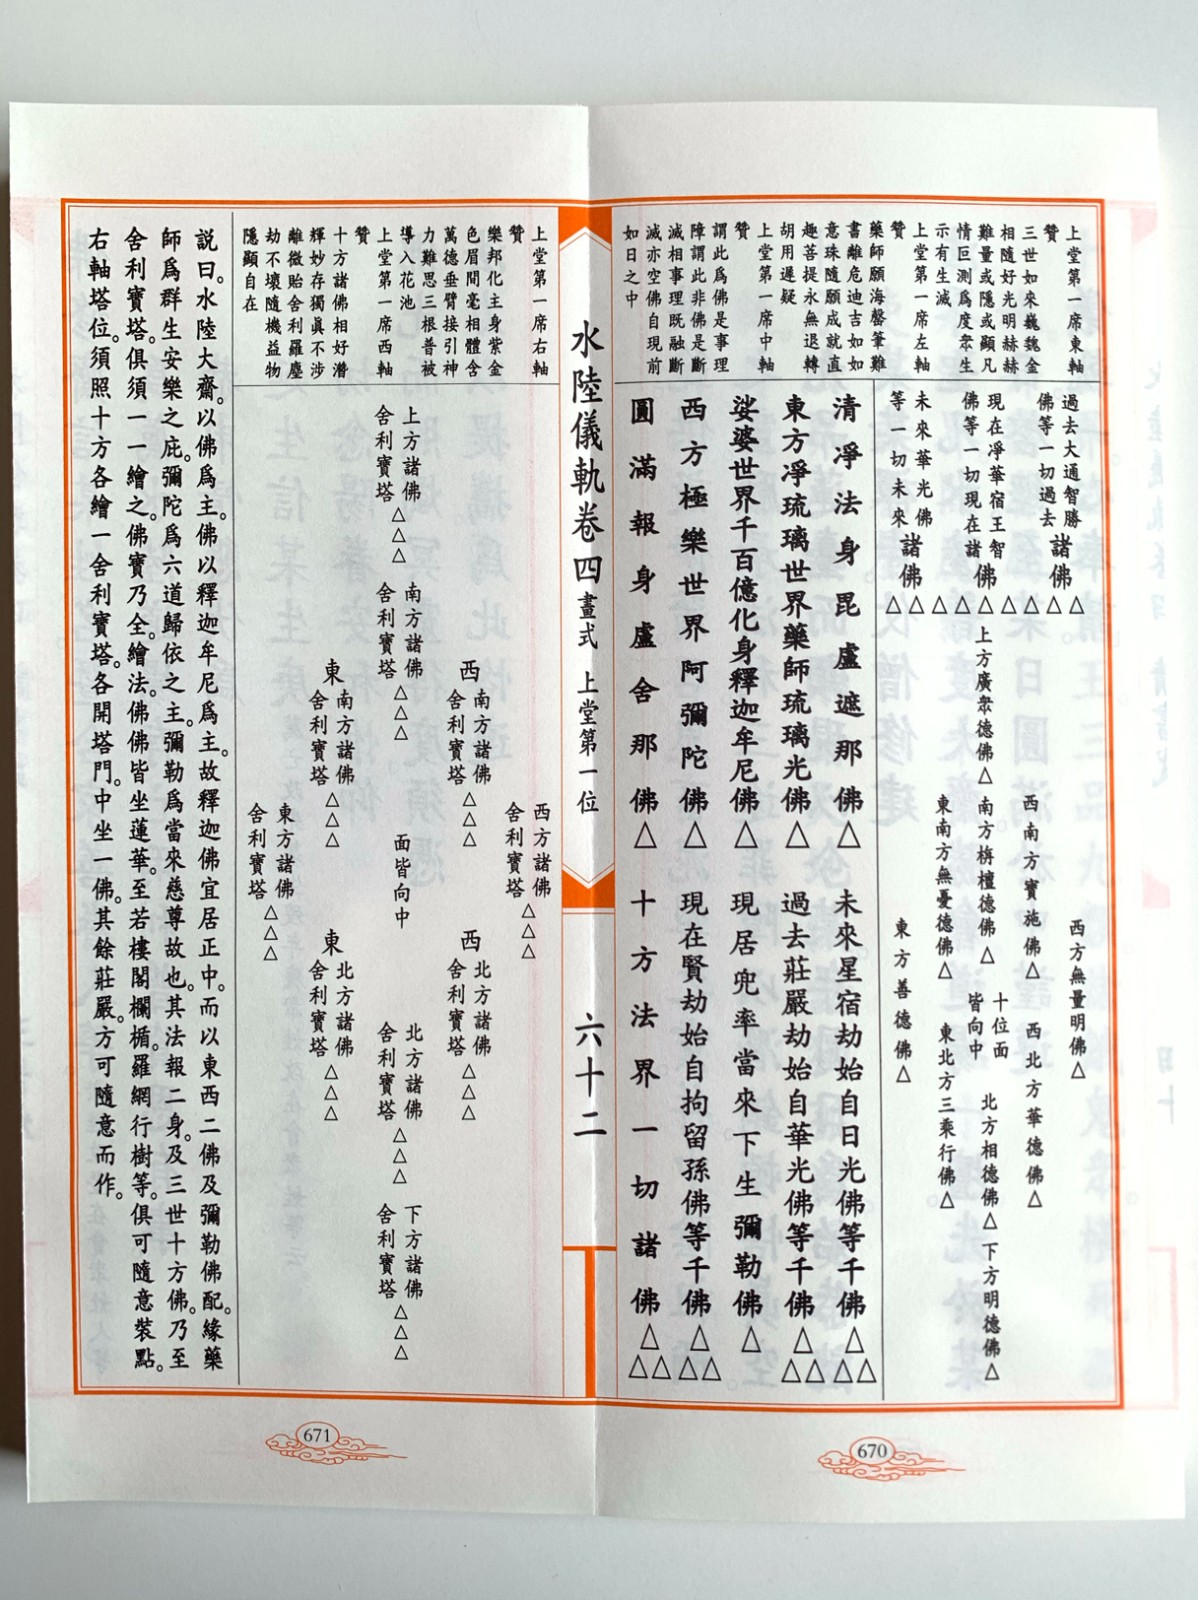 上堂第一席東軸
贊
三世如來巍巍金
相隨好光明赫赫
難量或隱或顯凡
情叵測爲度衆生
示有生滅
上堂第一席左軸
贊
藥師願海罄筆難
書離危迪吉如如
意珠隨願成就直
趣菩提永無退轉
胡用遲疑
上堂第一席中軸
贊
謂此爲佛是事理
障謂此非佛是斷
滅相事理既融斷
滅亦空佛自現前
如日之中
過去大通智勝
佛等一切過去
諸佛△△△
現在凈華宿王智
佛等一切現在諸
佛△△△
未來華光佛
等一切未來
諸佛△△△
西方無量明佛△
西南方寶施佛△
西北方華德佛△
上方廣衆德佛△
南方栴檀德佛△
十位面
皆向中
北方相德佛△
下方明德佛△
東南方無憂德佛△
東北方三乘行佛△
東方善德佛△
清凈法身毘盧遮那佛△
未來星宿劫始自日光佛等千佛△△△
東方凈琉璃世界藥師琉璃光佛△
過去莊嚴劫始自華光佛等千佛△△△
娑婆世界千百億化身釋迦牟尼佛△
現居兜率當來下生彌勒佛△
西方極樂世界阿彌陀佛△
現在賢劫始自拘留孫佛等千佛△△△
圓滿報身盧舍那佛△
十方法界一切諸佛△△△
670
水陸儀軌卷四 畫式 上堂第一位
六十二
上堂第一席右軸
贊
樂邦化主身紫金
色眉間毫相體含
萬德垂臂接引神
力難思三根普被
導入花池
上堂第一席西軸
贊
十方諸佛相好潛
輝妙存獨眞不涉
離微貽舍利羅塵
劫不壞隨機益物
隱顯自在
西方諸佛
舍利寶塔△△△
西
南方諸佛
舍利寶塔△△△
西
北方諸佛
舍利寶塔△△△
上方諸佛
舍利寶塔△△△
南方諸佛
舍利寶塔△△△
面皆向中
北方諸佛
舍利寶塔△△△
下方諸佛
舍利寶塔△△△
東
南方諸佛
舍利寶塔△△△
東
北方諸佛
舍利寶塔△△△
東方諸佛
舍利寶塔△△△
説曰。水陸大齋。以佛爲主。佛以釋迦牟尼爲主。故釋迦佛宜居正中。而以東西二佛及彌勒佛配。緣藥
師爲群生安樂之庇。彌陀爲六道歸依之主。彌勒爲當來慈尊故也。其法報二身。及三世十方佛。乃至
舍利寶塔。俱須一一繪之。佛寶乃全。繪法。佛佛皆坐蓮華。至若樓閣欄楯。羅網行樹等。俱可隨意裝點。
右軸塔位。須照十方各繪一舍利寶塔。各開塔門。中坐一佛。其餘莊嚴。方可隨意而作。
671